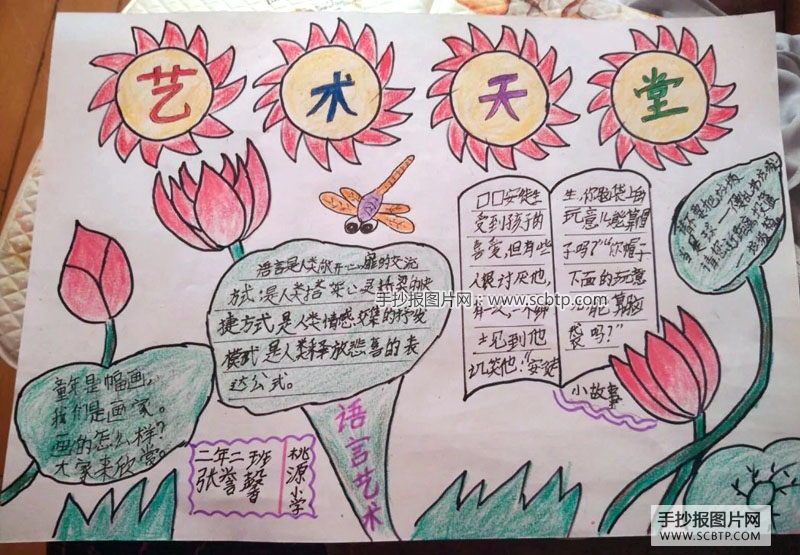 艺术天堂
语言是人类敞开心扉的交流
方式,是人类搭架心灵桥梁的快
捷方式是人类情感交集的抒发
模式是人类释放悲喜的表
达公式。
语言艺术
□□安徒生
受到孩子的
喜爱,但有些
人很讨厌他,
有一次,一个绅
士见到他
玩笑他:“安徒
生,你脑袋上的
玩意儿能算帽
子吗?”“你帽子
下面的玩意
儿能算脑
袋吗?”
小故事
童年是幅画,
我们是画家。
画的怎么样?
大家来欣赏。
二年二班
张誉馨
桃源小学
手抄报图片网:www.scbtp.com
手抄报图片网
WWW.SCBTP.COM